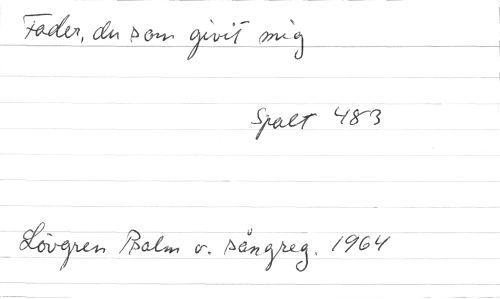 Fader, du som givit mig
Spalt 483
Lövgren Psalm o. sångreg. 1964